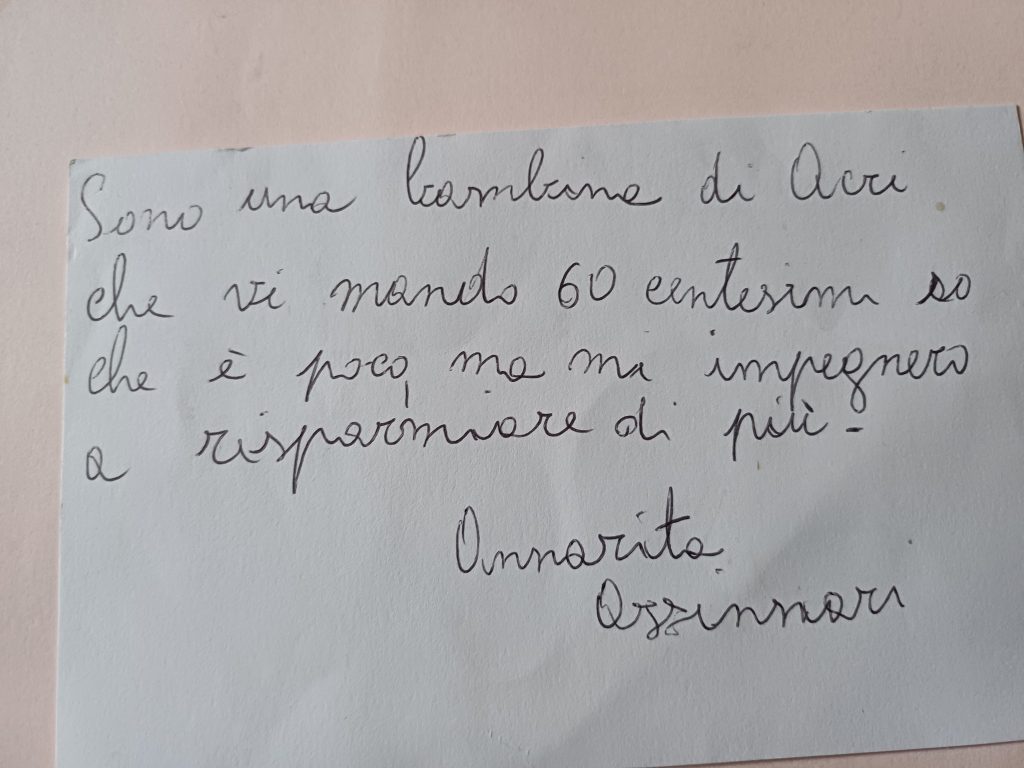 Sono una bambina di Acri
che vi mando 60 centesimi so
che è poco, ma mi impegnerò
a risparmiare di più -
Annarita
Azzinnari